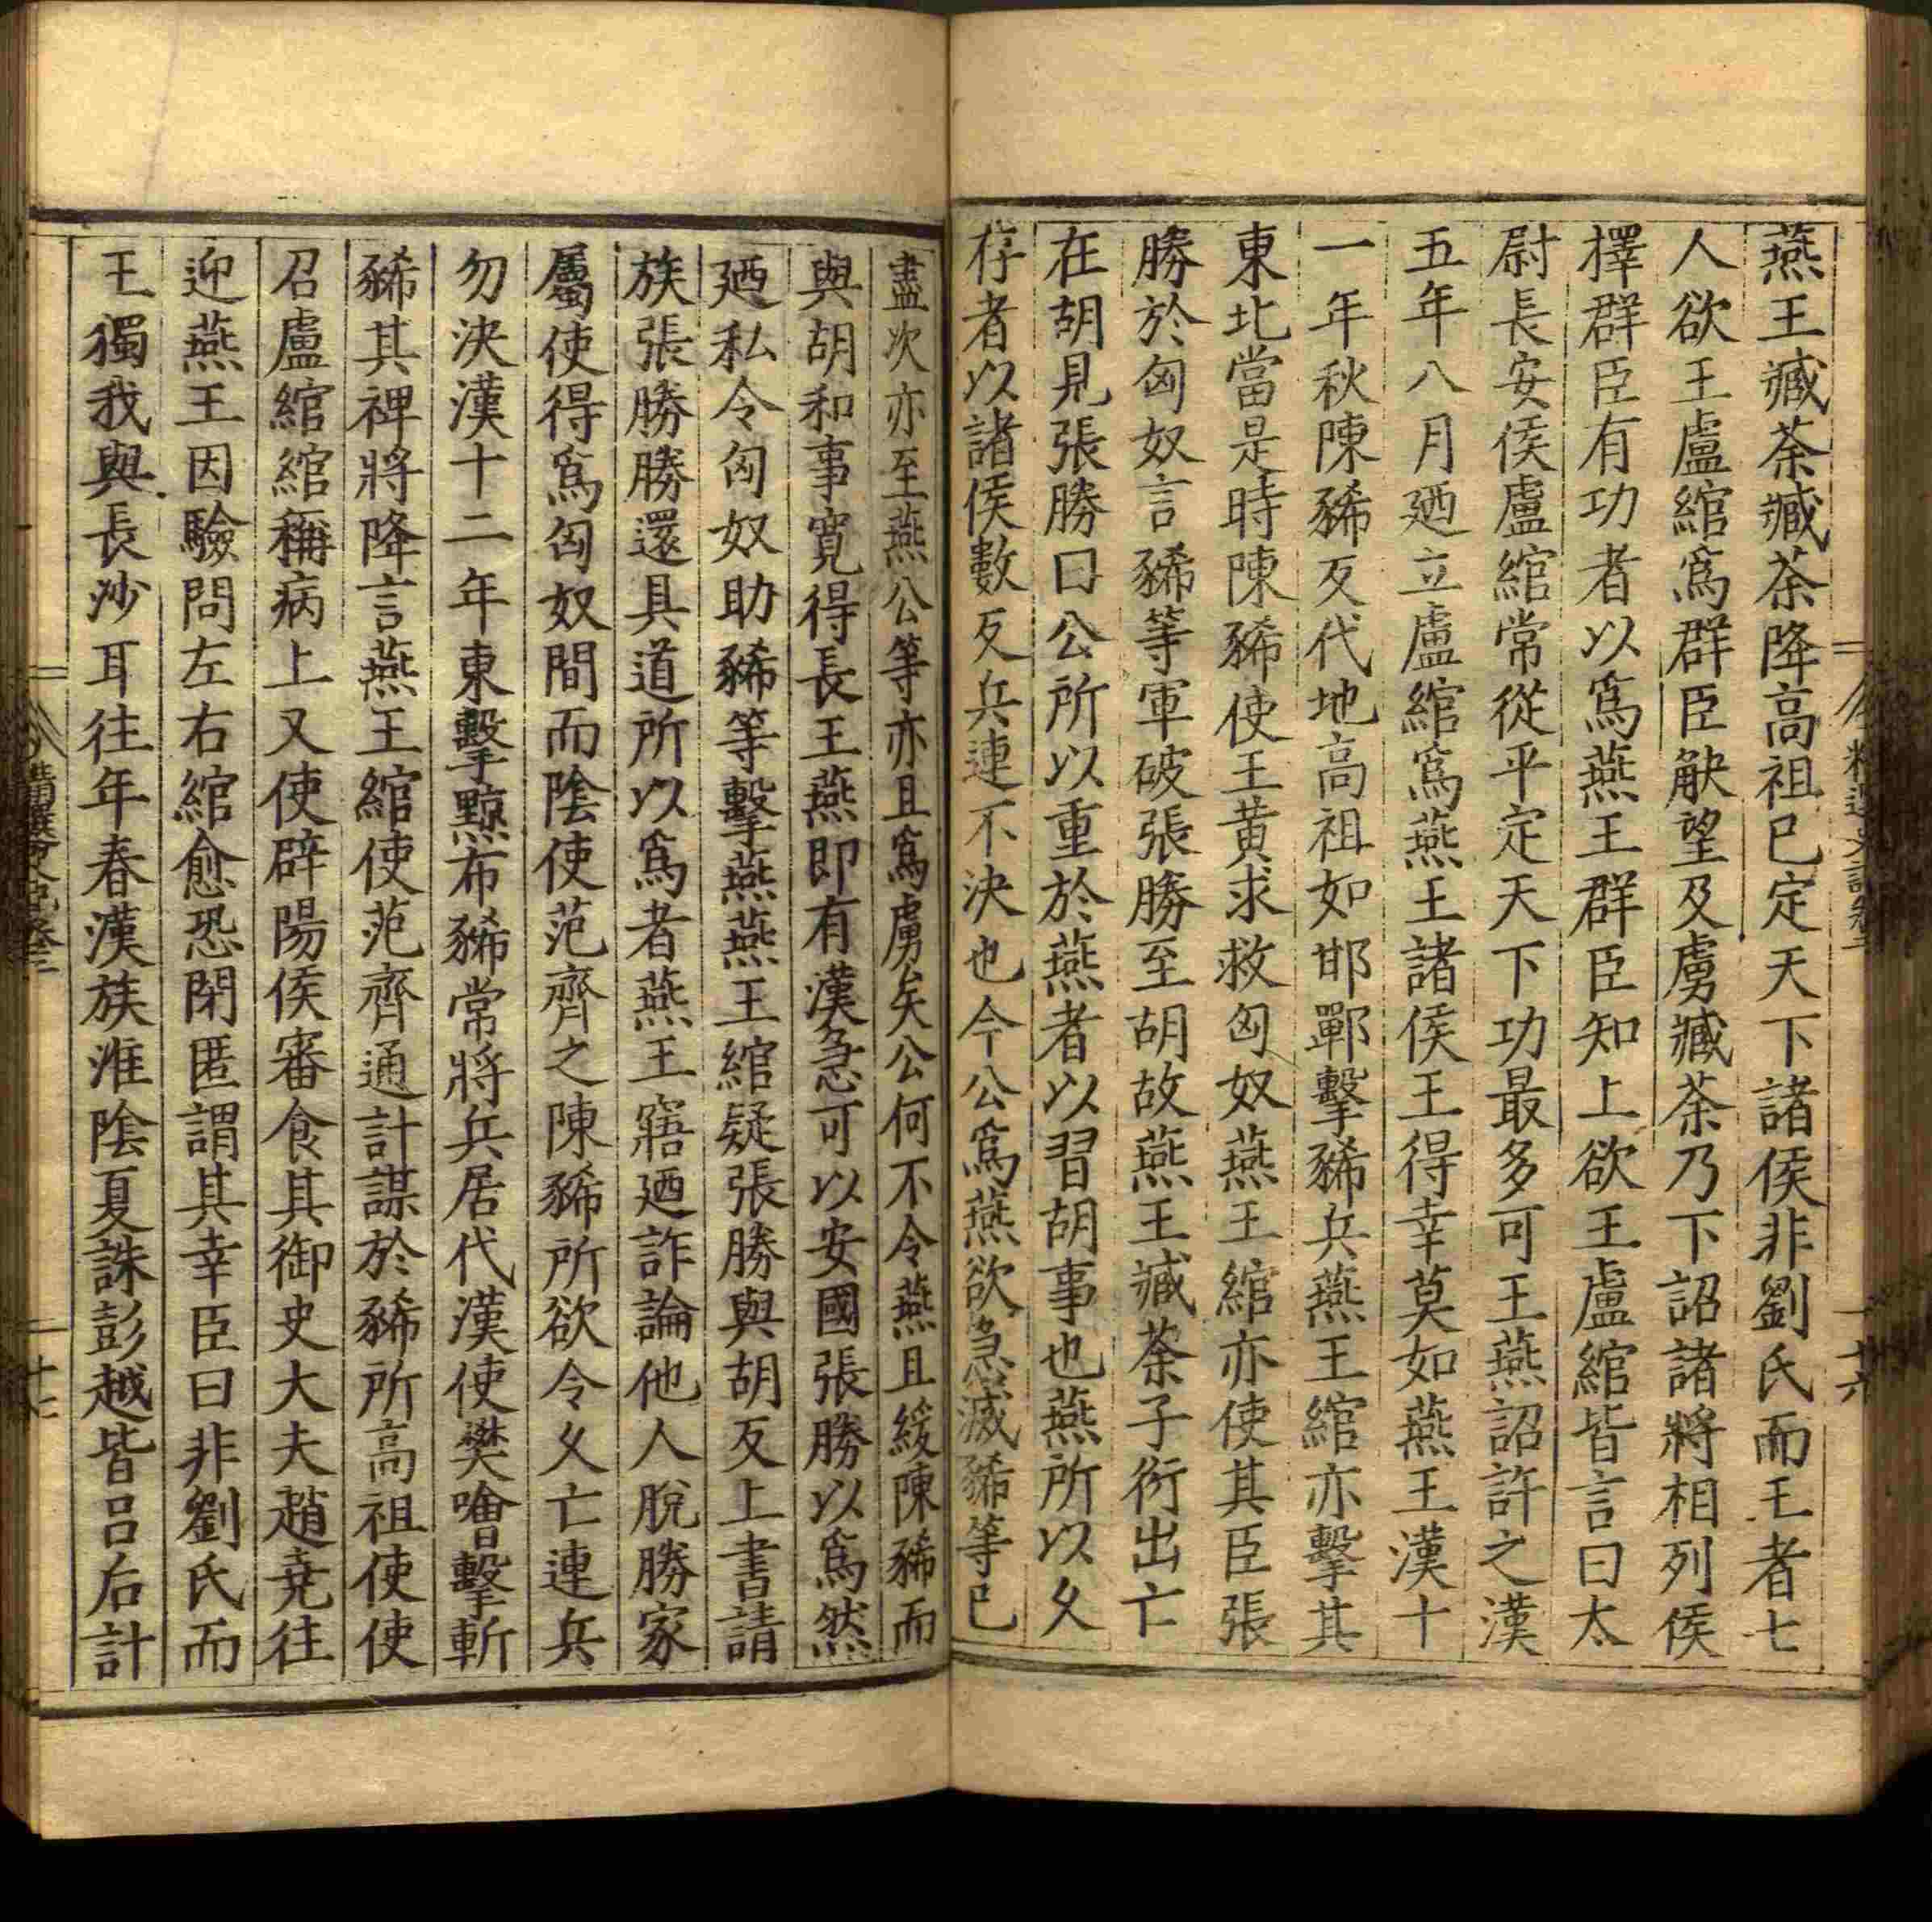 燕王臧荼臧荼降高祖已定天下諸侯非劉氏而王者七
人欲王盧綰爲群臣觖望及虜臧荼乃下詔諸將相列侯
擇群臣有功者以爲燕王群臣知上欲王盧綰皆言曰太
尉長安侯盧綰常從平定天下功最多可王燕詔許之漢
五年八月廼立盧綰爲燕王諸侯王得幸莫如燕王漢十
一年秋陳豨反代地高祖如邯鄲擊豨兵燕王綰亦擊其
東北當是時陳豨使王黄求救匈奴燕王綰亦使其臣張
勝於匈奴言豨等軍破張勝至胡故燕王臧荼子衍出亡
在胡見張勝曰公所以重於燕者以習胡事也燕所以久
存者以諸侯數反兵連不決也今公爲燕欲急滅豨等已
盡次亦至燕公等亦且爲虜矣公何不令燕且緩陳豨而
與胡和事寛得長王燕即有漢急可以安國張勝以爲然
廼私令匈奴助豨等擊燕燕王綰疑張勝與胡反上書請
族張勝勝還具道所以爲者燕王寤廼詐論他人脫勝家
屬使得爲匈奴間而陰使范齊之陳豨所欲令久亡連兵
勿決漢十二年東擊黥布豨常將兵居代漢使樊噲擊斬
豨其裨將降言燕王綰使范齊通計謀於豨所高祖使使
召盧綰綰稱病上又使辟陽侯審食其御史大夫趙尭往
迎燕王因驗問左右綰愈恐閉匿謂其幸臣曰非劉氏而
王獨我與長沙耳往年春漢族淮陰夏誅彭越皆呂后計